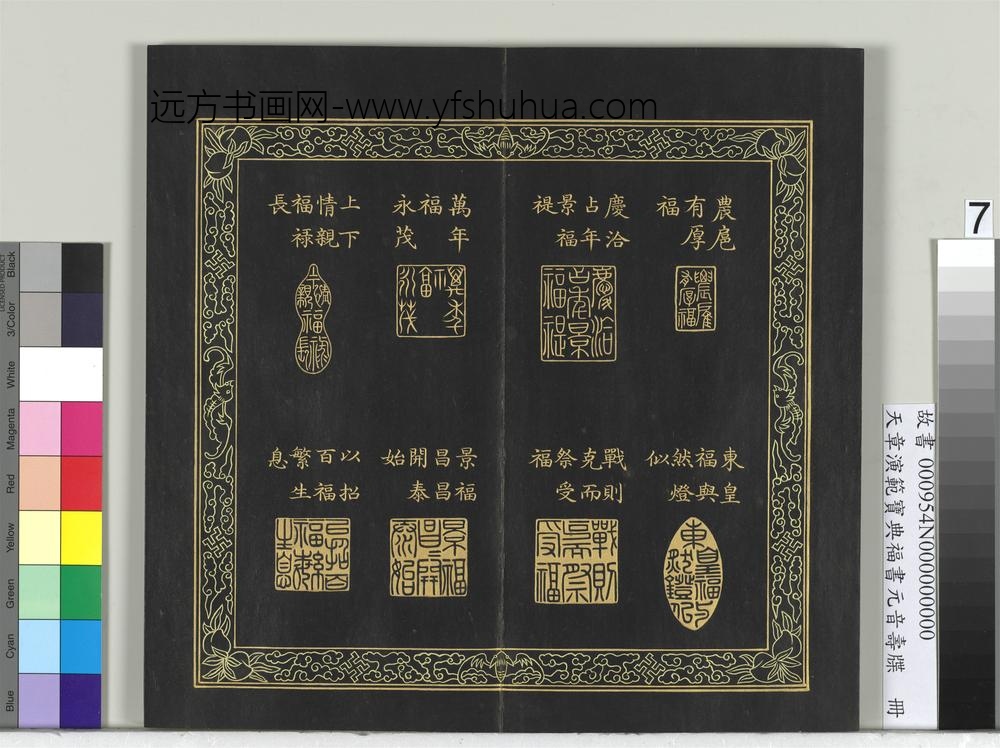 远方书画网-www.yfshuhua.com
農扈
有厚
福
慶洽
占年
景福
禔
萬年
福
永茂
上下
情親
福禄
長
東皇
福與
然燈
似
戰則
克而
祭受
福
景福
昌昌
開泰
始
以招
百福
繁生
息
7
故書 000954N000000000
天章演範寶典福書元音壽牒 冊
LICENSED PRODUCT
Black
3/Color
White
Magenta
Red
Yellow
Green
Cyan
Blue